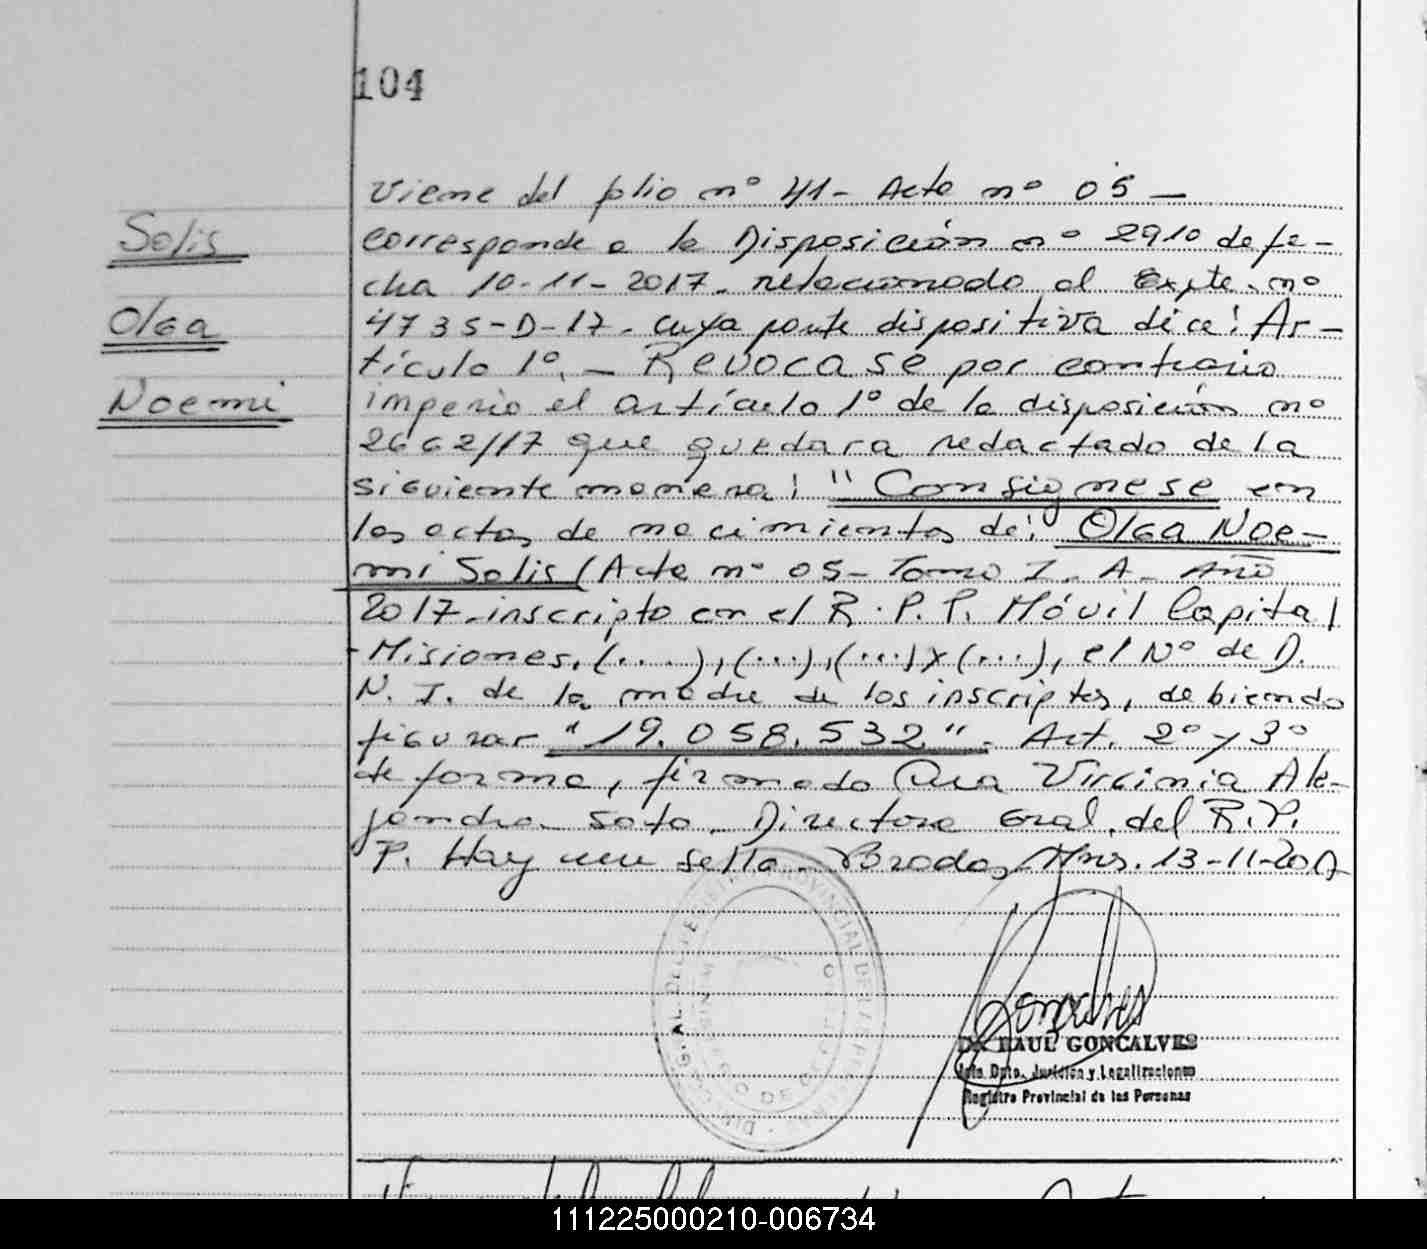 104
Viene del folio nº 41- Acta nº 05 -
Solis
corresponde a la Disposición nº 2910 de fe-
cha 10-11-2017. relacionado al Expte. nº
Olga
4735-D-17. cuya parte dispositiva dice: Ar-
tículo 1º. - REVOCASE por contrario
Noemi
imperio el artículo 1º de la disposición nº
2662/17 que quedara redactado de la
siguiente manera: "Consignese en
las actas de nacimientos de: Olga Noe-
mi Solis (Acta nº 05- Tomo I. A- Año
2017. inscripto en el R. P. P. Móvil Capital
-Misiones, (....), (...), (...) y (...), el Nº de D.
N. I. de la madre de los inscriptos, debiendo
figurar "19.058.532". Art. 2º y 3º
de forma, firmado Dra Virginia Ale-
jandra Soto. Directora Gral. del R.P.
P. Hay un sello. Posadas, Mnes. 13-11-2017
Goncalves
Dr. RAUL GONCALVES
Jefe Dpto. Jurídico y Legalizaciones
Registro Provincial de las Personas
PROVINCIAL DE LAS PERSONAS
111225000210-006734